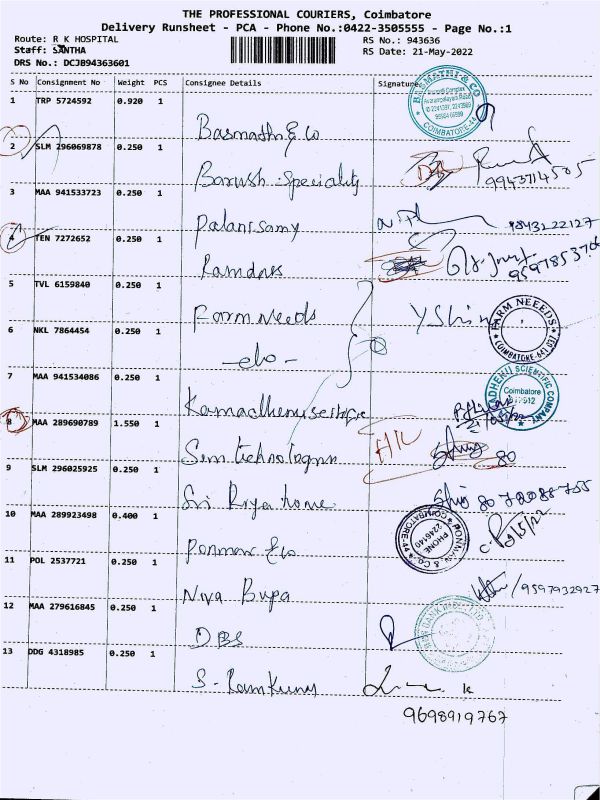 THE PROFESSIONAL COURIERS, Coimbatore
Delivery Runsheet - PCA - Phone No.:0422-3505555 - Page No.:1
Route: R K HOSPITAL RS No.: 943636
Staff: SANTHA RS Date: 21-May-2022
DRS No.: DCJB94363601
S No Consignment No Weight PCS Consignee Details Signature
1 TRP 5724592 0.920 1
Basmathi & Co
BASMATHI & CO
COIMBATORE-44
2 SLM 296069878 0.250 1
Barush Speciality 9943714505
3 MAA 941533723 0.250 1
Palanisamy 9843222127
4 TEN 7272652 0.250 1
Ramdas
5 TVL 6159840 0.250 1
Farm Needs
FARM NEEEDS
COIMBATORE-641 037
6 NKL 7864454 0.250 1
-do-
7 MAA 941534086 0.250 1
SCIENTIFIC COMPANY
Coimbatore
8 MAA 289690789 1.550 1
80
9 SLM 296025925 0.250 1
Sri Priya home 80 72088755
10 MAA 289923498 0.400 1
Ponman & Co
PONMAN & CO.
PHONE
2246140
COIMBATORE-44
11 POL 2537721 0.250 1
Niva Bupa 9597932927
12 MAA 279616845 0.250 1
DBS
13 DDG 4318985 0.250 1
S. Ramkumar
9698919767